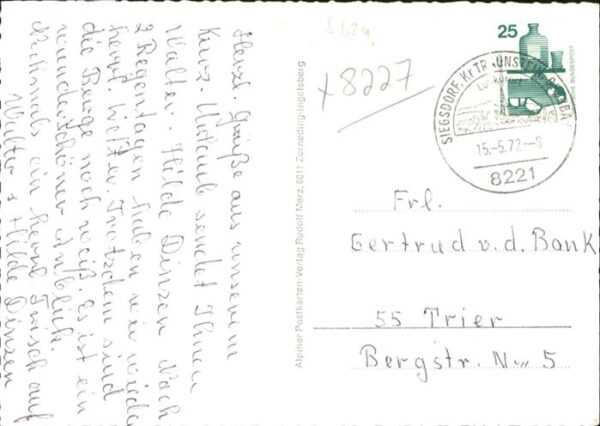 Herzl. Grüße aus unserem
Kurz-Urlaub sendet Ihnen
Walter + Hilde Dinzen Nach
2 Regentagen haben wir wieder
herrl. Wetter. Trotzdem sind
die Berge noch weiß. Es ist ein
wunderschöner Anblick.
Nochmals ein herzl. Frisch auf
Walter + Hilde Dinzen
Alpiner Postkarten-Verlag Rudolf Merz, 8011 Zorneding-Ingelsberg
S 629
x8227
25
DEUTSCHE BUNDESPOST
SIEGSDORF, Kr TRAUNSTEIN
Luftkurort
15.-5.72-8
8221
Frl.
Gertrud v. d. Bank
55 Trier
Bergstr. No 5